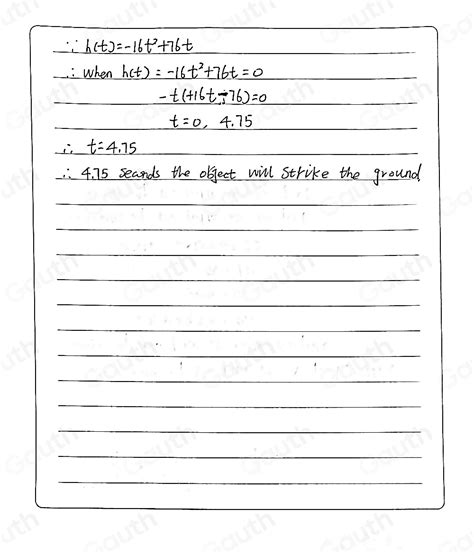 ∵ h(t)=-16t²+76t
∴ when h(t) = -16t²+76t = 0
-t(+16t-76)=0
t=0, 4.75
∴ t=4.75
∴ 4.75 seconds the object will strike the ground
Gauth